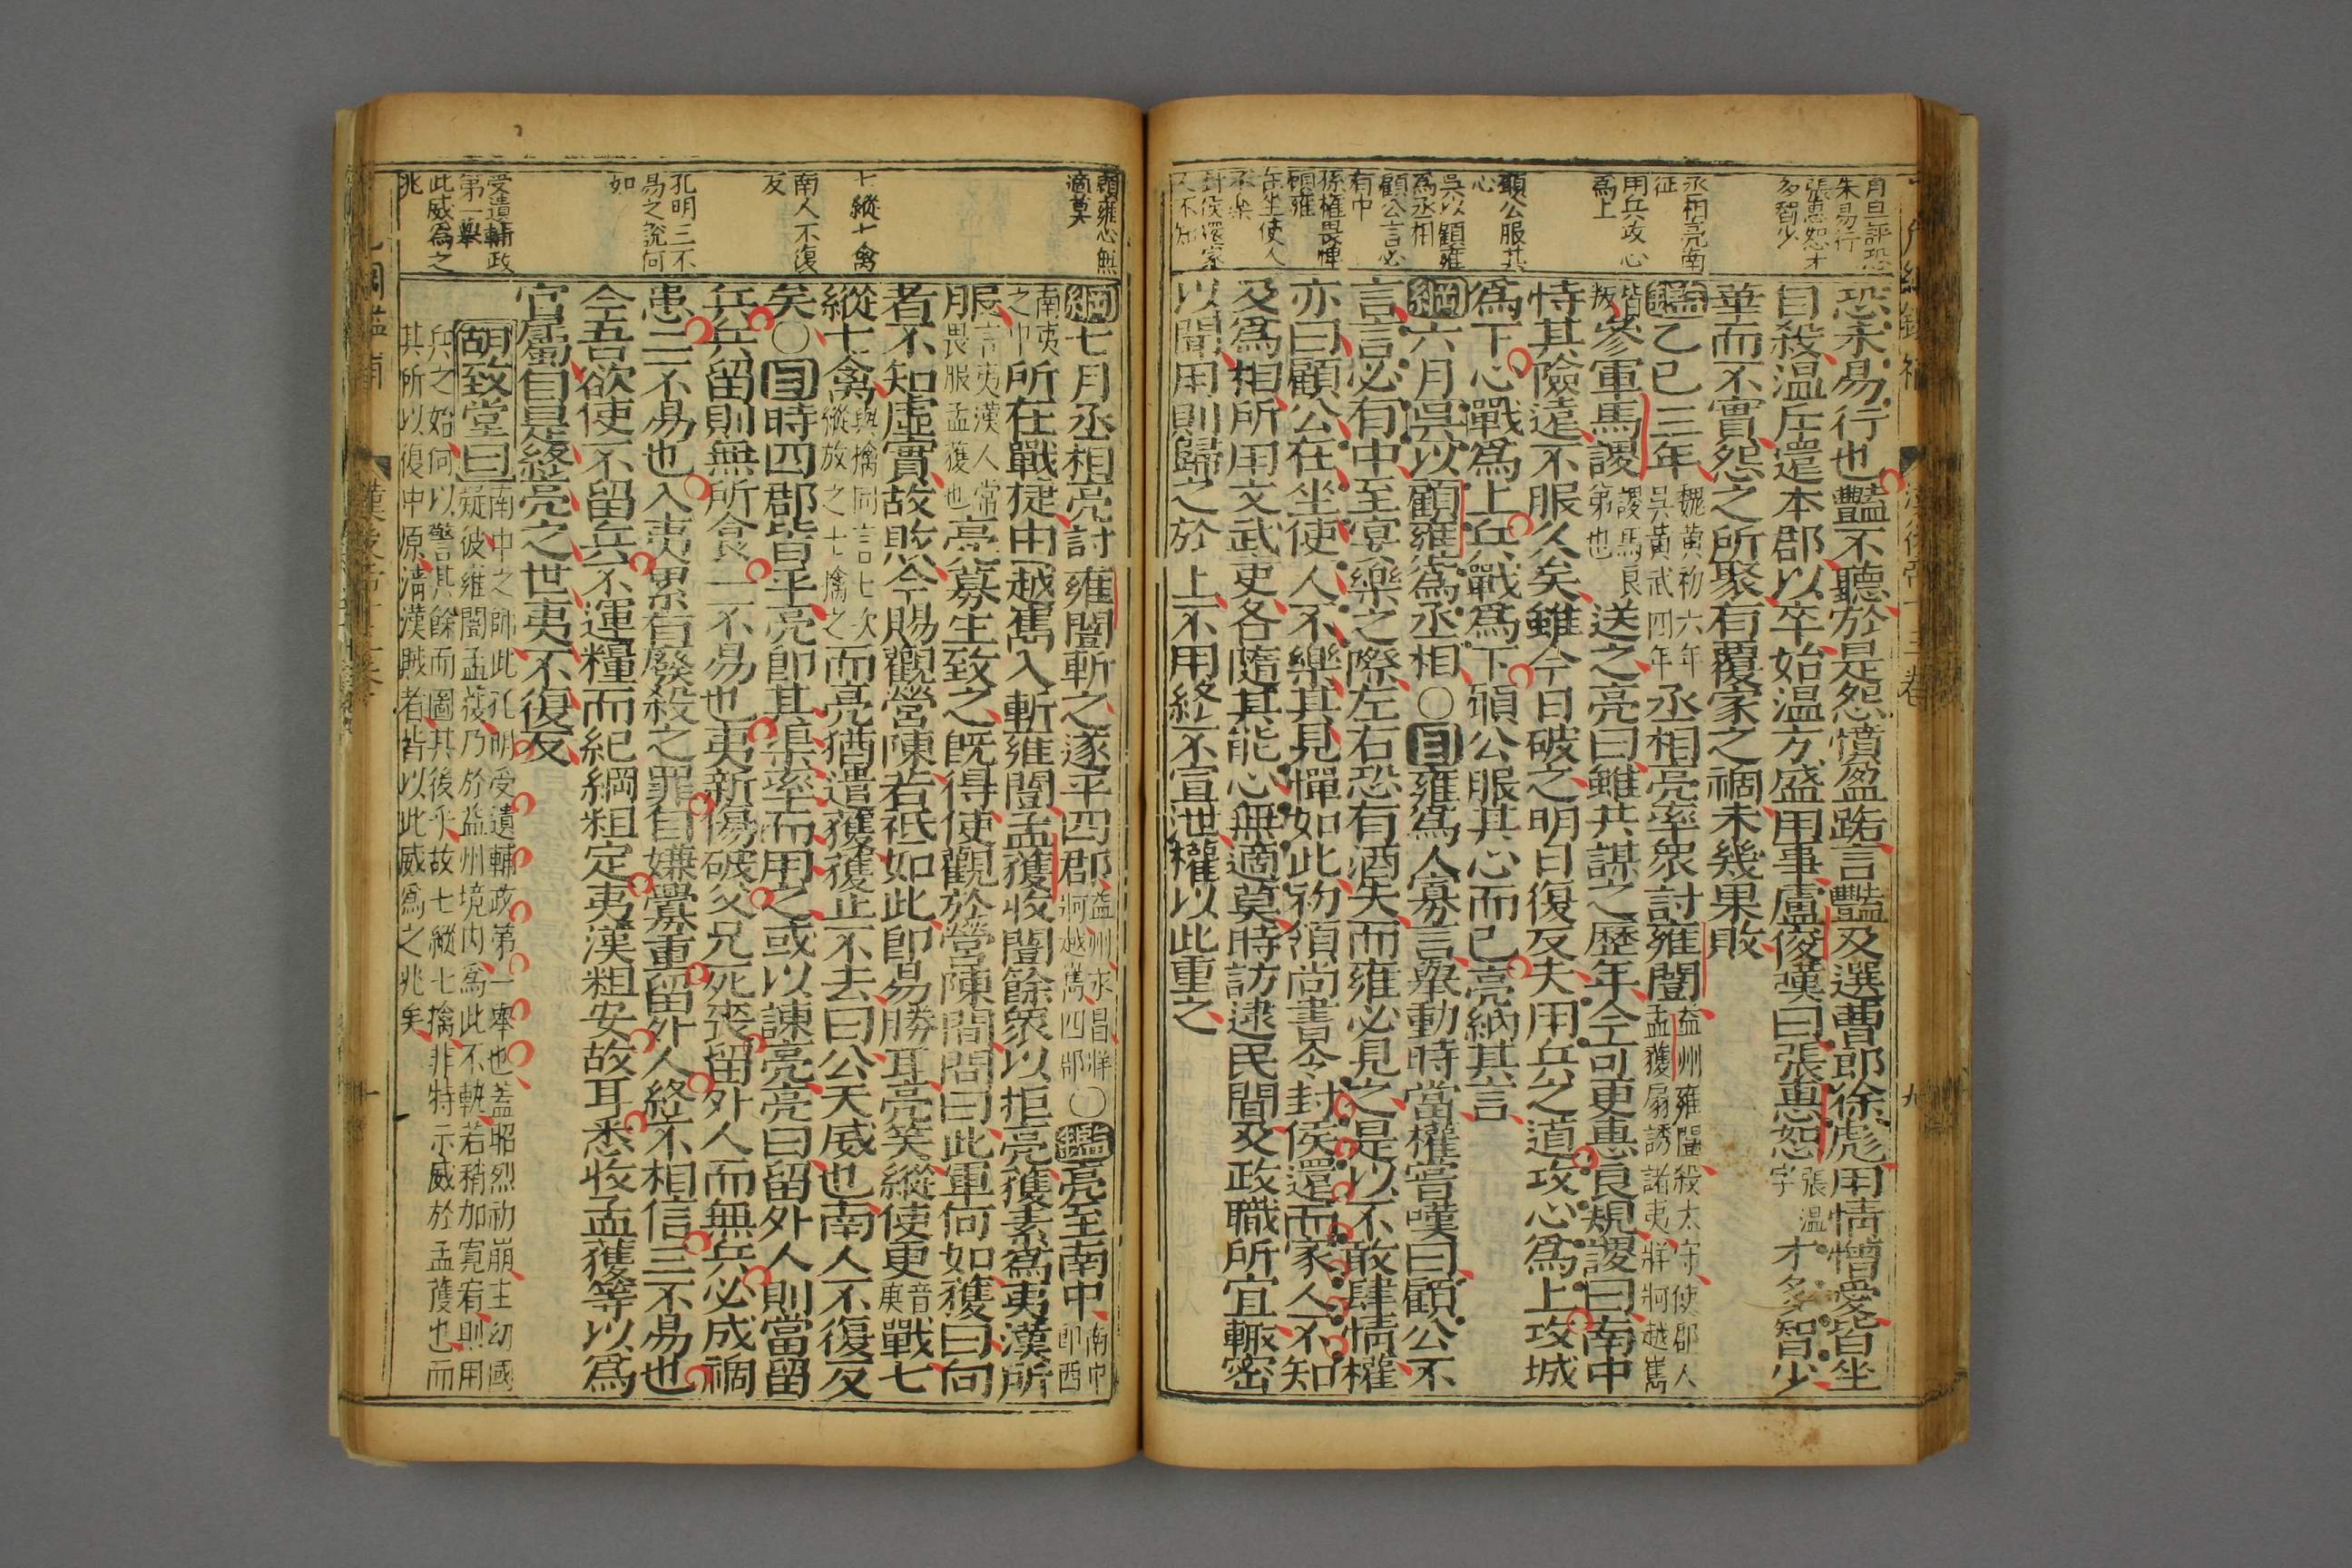 月旦評恐
朱易行
張惠恕才
多智少
丞相亮南
征
用兵攻心
爲上
願公服其
心
吳以顧雍
爲丞相
顧公言必
有中
孫權畏憚
顧雍
在坐使人
不樂
封侯還家
人不知
恐未易行也豔不聽於是怨憤盈路言豔及選曹郎徐彪用情憎愛皆坐
自殺溫斥還本郡以卒始溫方盛用事虞俊嘆曰張惠恕張溫字才多智少
華而不實怨之所聚有覆家之禍未幾果敗
鑑乙巳三年魏黃初六年吳黃武四年丞相亮率衆討雍闓益州雍闓殺太守使郡人孟獲扇誘諸夷牂牁越嶲
皆叛參軍馬謖謖馬良第也送之亮曰雖共謀之歷年今可更惠良規謖曰南中
恃其險遠不服久矣雖今日破之明日復反夫用兵之道攻心爲上攻城
爲下心戰爲上兵戰爲下願公服其心而已亮納其言
綱六月吳以顧雍爲丞相○目雍爲人寡言舉動時當權嘗嘆曰顧公不
言言必有中至宴樂之際左右恐有酒失而雍必見之是以不敢肆情權
亦曰顧公在坐使人不樂其見憚如此初領尚書令封侯還而家人不知
及爲相所用文武吏各隨其能心無適莫時訪逮民間及政職所宜輒密
以聞用則歸之於上不用終不宣泄權以此重之
顧雍心無
適莫
七縱七禽
南人不復
反
孔明三不
易之說何
如
受遺輔政
第一舉
此威爲之
兆
綱七月丞相亮討雍闓斬之遂平四郡益州永昌牂牁越嶲四郡○鑑亮至南中南中即西
南夷之中所在戰捷由越嶲入斬雍闓孟獲收闓餘衆以拒亮獲素爲夷漢所
服言夷漢人常畏服孟獲也亮募生致之既得使觀於營陳間問曰此軍何如獲曰向
者不知虛實故敗今賜觀營陳若祇如此即易勝耳亮笑縱使更音庚戰七
縱七禽與擒同言七次縱放之七擒之而亮猶遣獲獲止不去曰公天威也南人不復反
矣○目時四郡皆平亮即其渠率而用之或以諫亮亮曰留外人則當留
兵兵留則無所食一不易也夷新傷破父兄死喪留外人而無兵必成禍
患二不易也入夷累有廢殺之罪自嫌釁重留外人終不相信三不易也
今吾欲使不留兵不運糧而紀綱粗定夷漢粗安故耳悉收孟獲等以爲
官屬自是終亮之世夷不復反
胡致堂曰南中之師此孔明受遺輔政第一舉也蓋昭烈初崩主幼國
疑彼雍闓孟獲乃於益州境內爲此不軌若稍加寬宥則用
兵之始何以警其餘而圖其後乎故七縱七擒非特示威於孟獲也而
其所以復中原清漢賊者皆以此威爲之兆矣